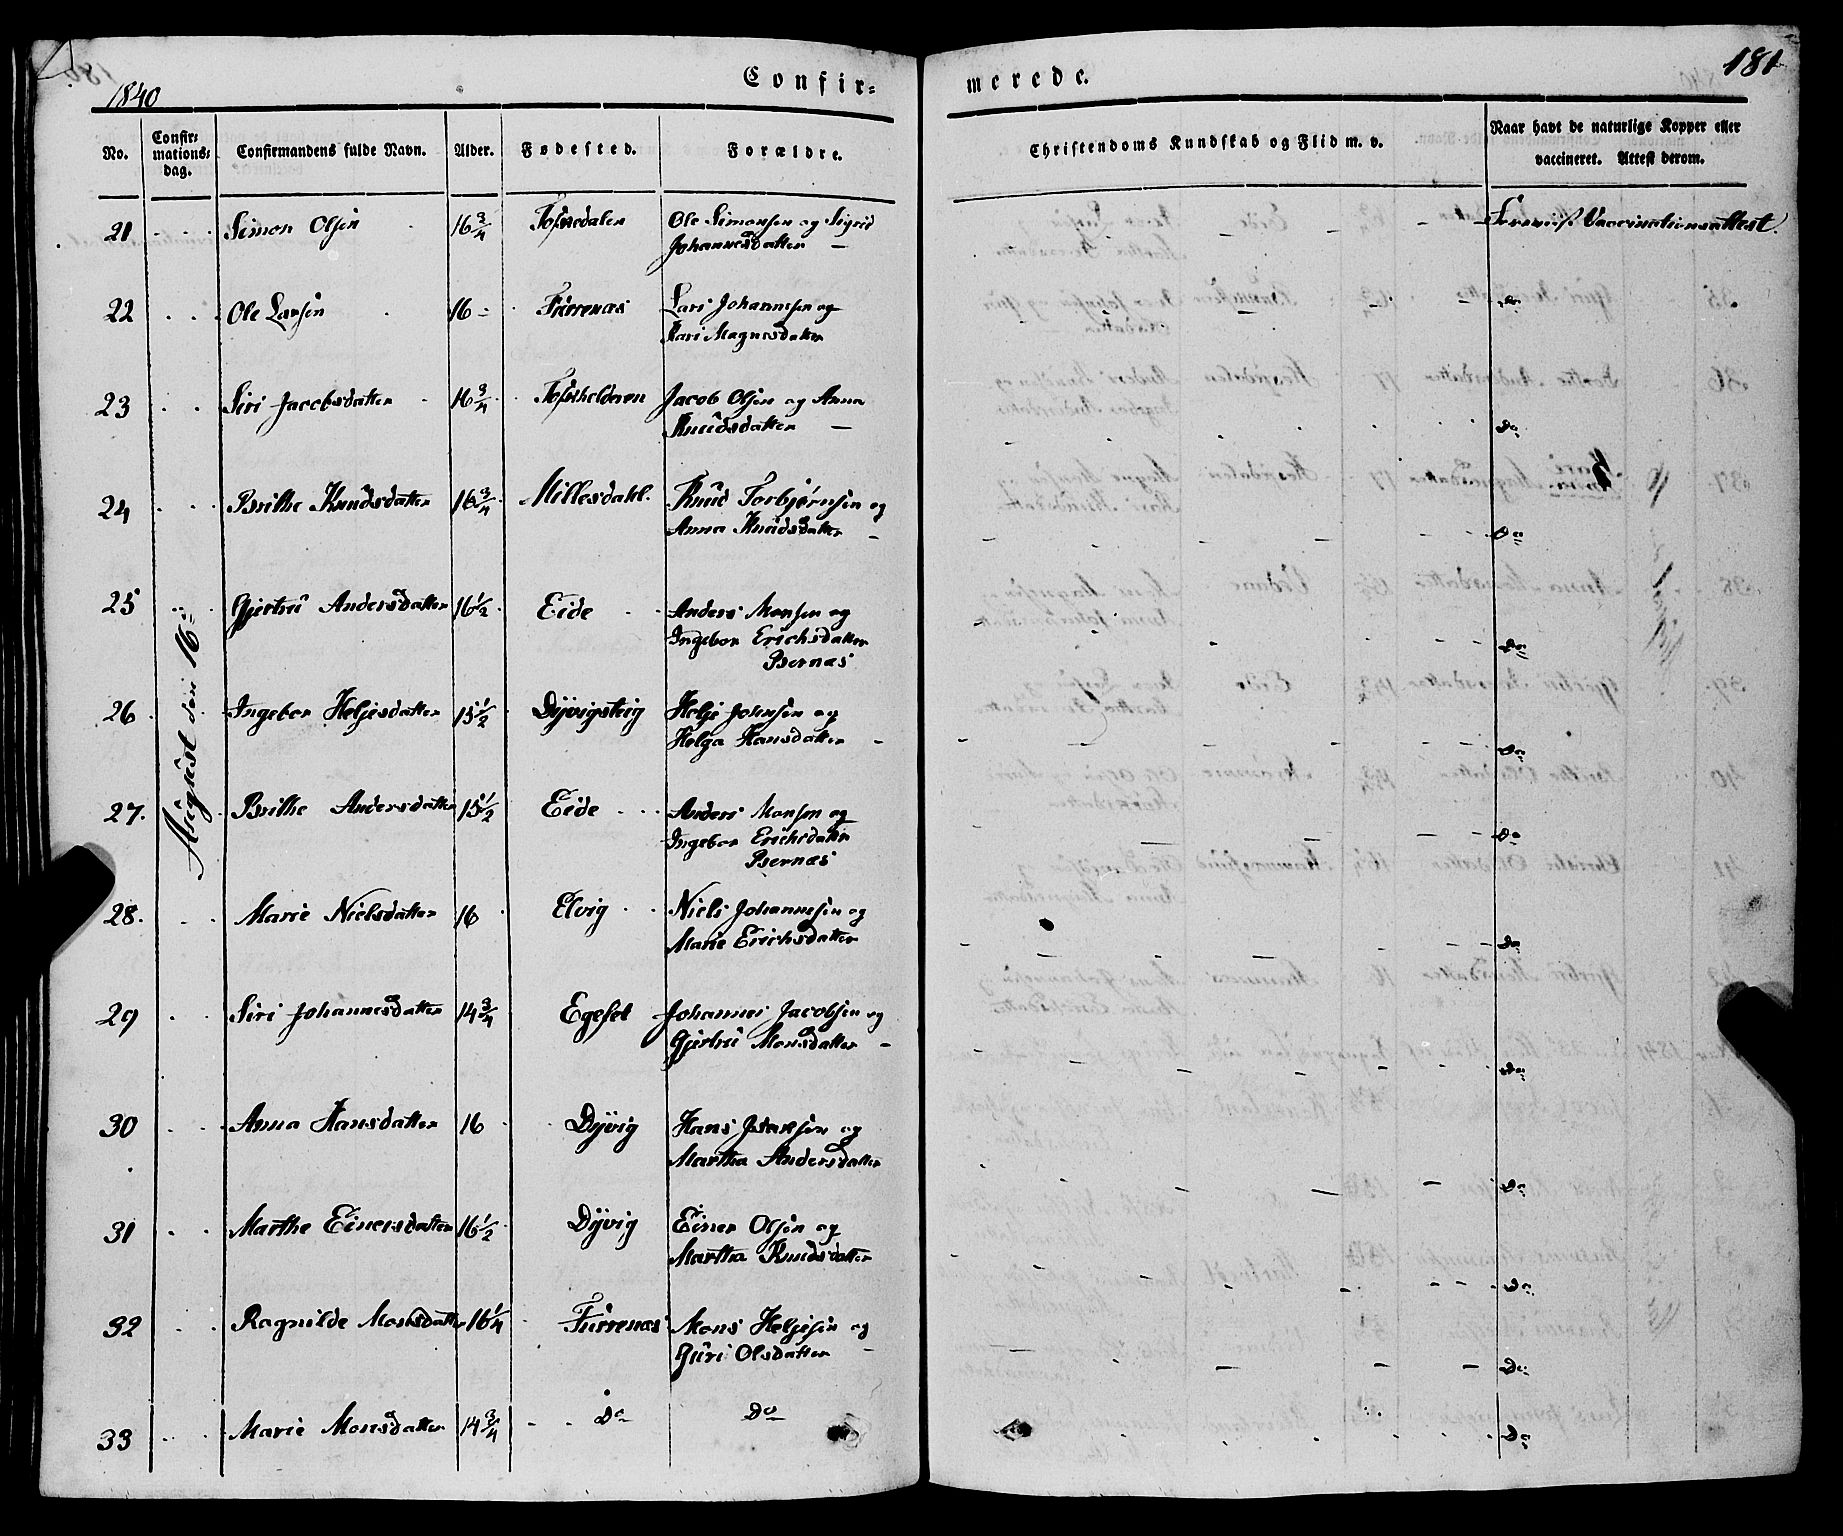 181
1840
Confir= merede.
No.
Confir=
mations=
dag.
Confirmandens fulde Navn.
Alder.
Fødested.
Forældre.
Christendoms Kundskab og Flid m. v.
Naar havt de naturlige Kopper eller
vaccineret. Attest derom.
August den 16
21 Simon Olsen 16 3/4 Ole Simonsen og Sigrid Vaccinationsattest.
Johannesdatter –
22 Ole Larsen 16 Furrenæs Lars Johannesen og Do
Kari Magnesdatter
23 Siri Jacobsdatter 16 3/4 Jacob Olsen og Anna
Knudsdatter – Do
24 Brithe Knudsdatter 16 3/4 Millesdahl Knud Torbjørnsen og
Anna Knudsdatter – Do
25 Gjertrü Andersdatter 16 1/2 Eide Anders Monsen og
Ingebor Erichsdatter Do
Bernæs
26 Ingebor Heljesdatter 15 1/2 Dyvigsteig Helje Johnsen og
Helga Hansdatter – Do
27. Brithe Andersdatter 15 1/2 Eide Anders Monsen og
Ingebor Erichsdatter Do
Bernæs
28. Marie Nielsdatter 16 Elvig Niels Johannesen og
Marie Erichsdatter Do
29 Siri Johannesdatter 14 3/4 Egeset Johannes Jacobsen og
Gjertrü Monsdatter – Do
30 Anna Hansdatter 16 Dyvig Hans og
Martha Andersdatter Do
31 Marthe Einersdatter 16 1/2 Dyvig Einer Olsen og
Martha Knudsdatter Do
32 Ragnilde Monsdatter 16 1/4 Furrenæs Mons Heljesen og
Guri Olsdatter – Do
33 Marie Monsdatter 14 3/4 Do Do Do